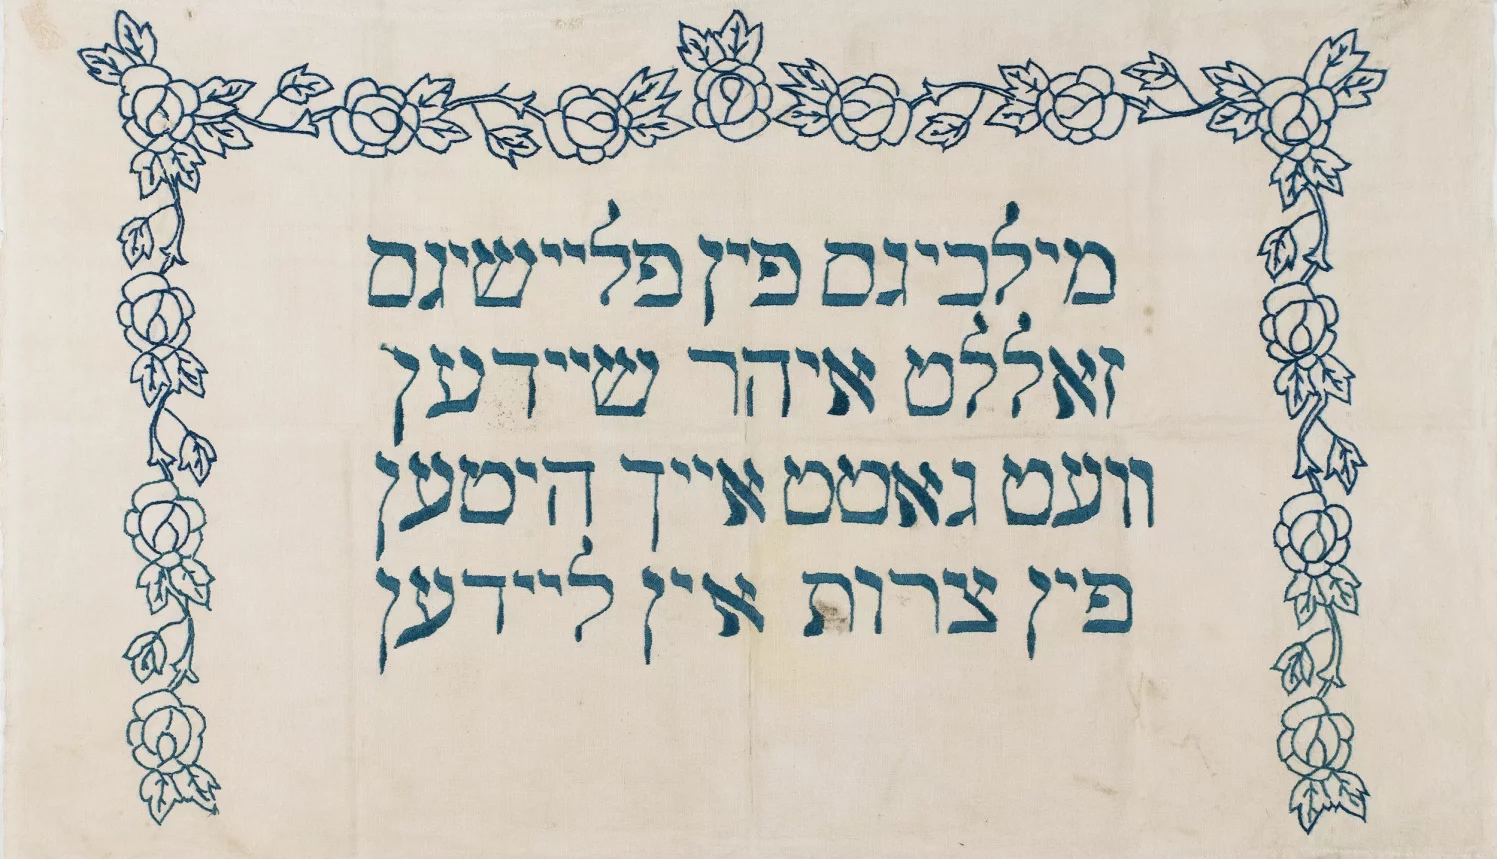 מילכיגס פין פליישיגס
זאללט איהר שיידען
וועט גאטט אייך היטען
פין צרות אין ליידען